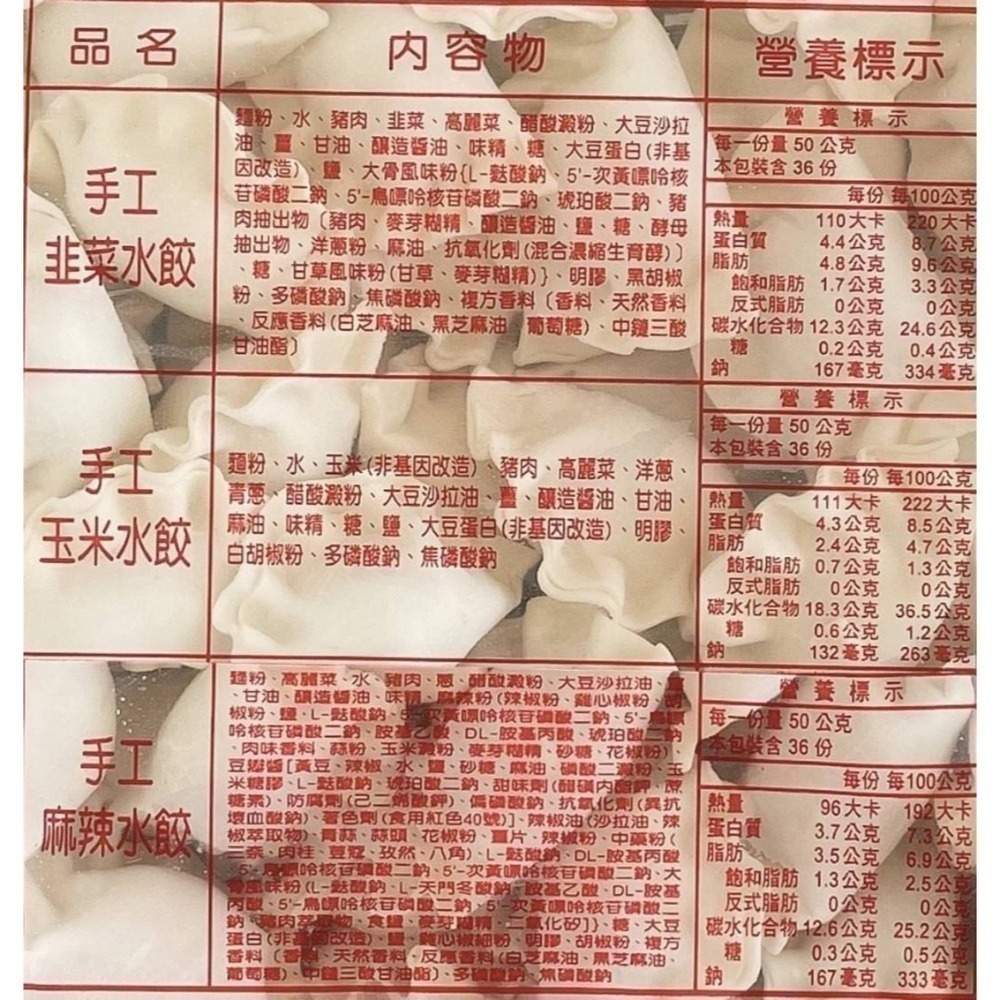 品名 內容物 營養標示
手工
韭菜水餃
麵粉、水、豬肉、韭菜、高麗菜、醋酸澱粉、大豆沙拉
油、薑、甘油、釀造醬油、味精、糖、大豆蛋白(非基
因改造)、鹽、大骨風味粉{L-麩酸鈉、5'-次黃嘌呤核
苷磷酸二鈉、5'-鳥嘌呤核苷磷酸二鈉、琥珀酸二鈉、豬
肉抽出物〔豬肉、麥芽糊精、釀造醬油、鹽、糖、酵母
抽出物、洋蔥粉、麻油、抗氧化劑(混合濃縮生育醇)〕
、糖、甘草風味粉(甘草、麥芽糊精)}、明膠、黑胡椒
粉、多磷酸鈉、焦磷酸鈉、複方香料〔香料、天然香料
、反應香料(白芝麻油、黑芝麻油、葡萄糖)、中鏈三酸
甘油酯〕
營養標示
每一份量 50 公克
本包裝含 36 份
每份 每100公克
熱量 110大卡 220大卡
蛋白質 4.4公克 8.7公克
脂肪 4.8公克 9.6公克
飽和脂肪 1.7公克 3.3公克
反式脂肪 0公克 0公克
碳水化合物 12.3公克 24.6公克
糖 0.2公克 0.4公克
鈉 167毫克 334毫克
手工
玉米水餃
麵粉、水、玉米(非基因改造)、豬肉、高麗菜、洋蔥、
青蔥、醋酸澱粉、大豆沙拉油、薑、釀造醬油、甘油、
麻油、味精、糖、鹽、大豆蛋白(非基因改造)、明膠、
白胡椒粉、多磷酸鈉、焦磷酸鈉
營養標示
每一份量 50 公克
本包裝含 36 份
每份 每100公克
熱量 111大卡 222大卡
蛋白質 4.3公克 8.5公克
脂肪 2.4公克 4.7公克
飽和脂肪 0.7公克 1.3公克
反式脂肪 0公克 0公克
碳水化合物 18.3公克 36.5公克
糖 0.6公克 1.2公克
鈉 132毫克 263毫克
手工
麻辣水餃
麵粉、高麗菜、水、豬肉、蔥、醋酸澱粉、大豆沙拉油、薑
、甘油、釀造醬油、味精、麻辣粉(辣椒粉、雞心椒粉、胡
椒粉、鹽、L-麩酸鈉、5'-次黃嘌呤核苷磷酸二鈉、5'-鳥嘌
呤核苷磷酸二鈉、胺基乙酸、DL-胺基丙酸、琥珀酸二鈉
、肉味香料、蒜粉、玉米澱粉、麥芽糊精、砂糖、花椒粉)、
豆瓣醬[黃豆、辣椒、水、鹽、砂糖、麻油、磷酸二澱粉、玉
米糖膠、L-麩酸鈉、琥珀酸二鈉、甜味劑(醋磺內酯鉀、蔗
糖素)、防腐劑(己二烯酸鉀)、偏磷酸鈉、抗氧化劑(異抗
壞血酸鈉)、著色劑(食用紅色40號)]、辣椒油(沙拉油、辣
椒萃取物)、青蒜、蒜頭、花椒粉、薑片、辣椒粉、中藥粉(
三奈、肉桂、荳蔻、孜然、八角)、L-麩酸鈉、DL-胺基丙酸
、5'-鳥嘌呤核苷磷酸二鈉、5'-次黃嘌呤核苷磷酸二鈉、大
骨風味粉(L-麩酸鈉、L-天門冬酸鈉、胺基乙酸、DL-胺基
丙酸、5'-鳥嘌呤核苷磷酸二鈉、5'-次黃嘌呤核苷磷酸二
鈉、豬肉萃取物、食鹽、麥芽糊精、二氧化矽]}、糖、大豆
蛋白(非基因改造)、鹽、雞心椒細粉、明膠、胡椒粉、複方
香料〔香料、天然香料、反應香料(白芝麻油、黑芝麻油、
葡萄糖)、中鏈三酸甘油酯〕、多磷酸鈉、焦磷酸鈉
營養標示
每一份量 50 公克
本包裝含 36 份
每份 每100公克
熱量 96大卡 192大卡
蛋白質 3.7公克 7.3公克
脂肪 3.5公克 6.9公克
飽和脂肪 1.3公克 2.5公克
反式脂肪 0公克 0公克
碳水化合物 12.6公克 25.2公克
糖 0.3公克 0.5公克
鈉 167毫克 333毫克